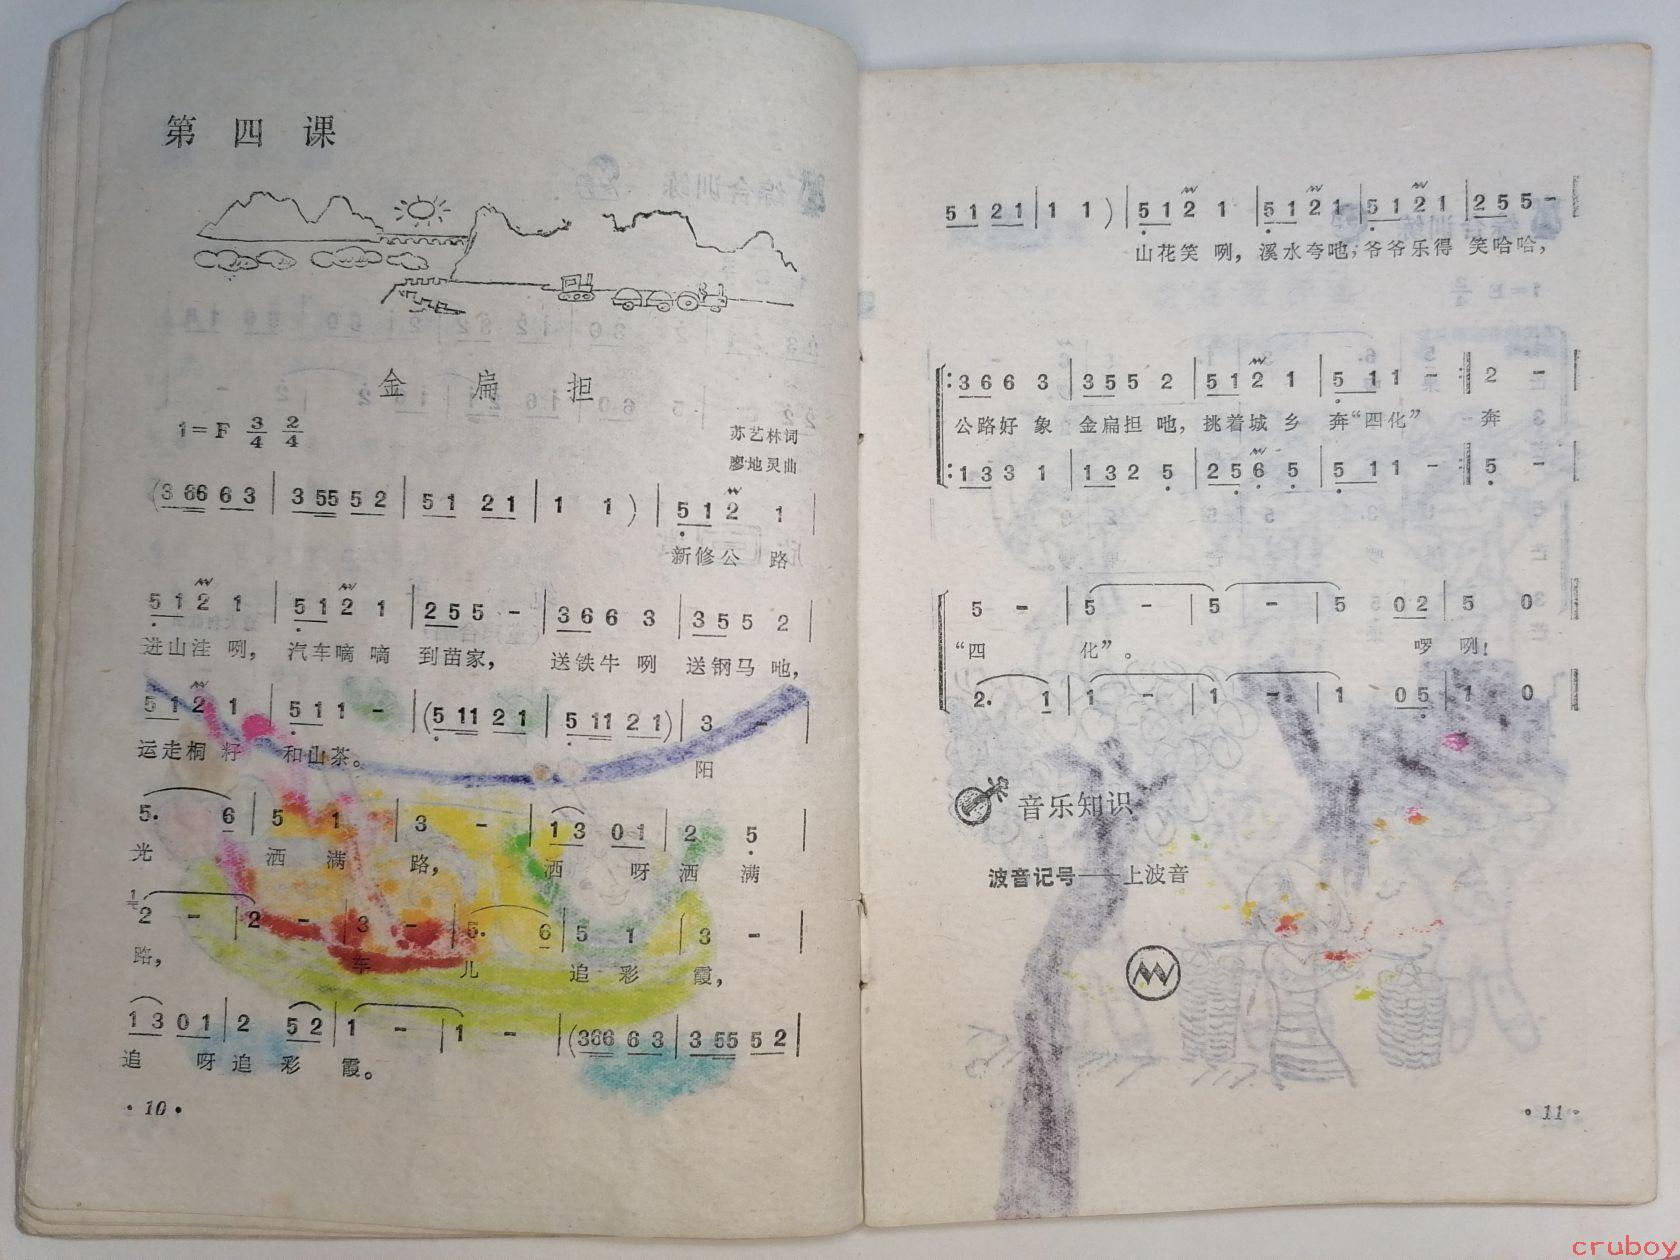 第四课
金扁担
1=F 3/4 2/4
苏艺林词
廖地灵曲
(3 66 6 3 | 3 55 5 2 | 5 1 2 1 | 1 1 ) | 5 1 2 1 |
新修公路
5 1 2 1 | 5 1 2 1 | 2 5 5 - | 3 6 6 3 | 3 5 5 2 |
进山洼咧，汽车嘀嘀到苗家，送铁牛咧送钢马吔，
5 1 2 1 | 5 1 1 - | (5 11 2 1 | 5 11 2 1) | 3 - |
运走桐籽和山茶。阳
5. 6 | 5 1 | 3 - | 1 3 0 1 | 2 5 |
光洒满路，洒呀洒满
2 - | 2 - | 3 - | 5. 6 | 5 1 | 3 - |
路，车儿追彩霞，
1 3 0 1 | 2 5 2 | 1 - | 1 - | (366 6 3 | 3 55 5 2 |
追呀追彩霞。
·10·
5 1 2 1 | 1 1 ) | 5 1 2 1 | 5 1 2 1 | 5 1 2 1 | 2 5 5 - |
山花笑咧，溪水夸吔，爷爷乐得笑哈哈，
: 3 6 6 3 | 3 5 5 2 | 5 1 2 1 | 5 1 1 - :| 2 - |
公路好象金扁担吔，挑着城乡奔“四化”奔
: 1 3 3 1 | 1 3 2 5 | 2 5 6 5 | 5 1 1 - :| 5 - |
5 - | 5 - | 5 - | 5 0 2 | 5 0
“四化”。啰咧！
2. 1 | 1 - | 1 - | 1 0 5 | 1 0
音乐知识
波音记号——上波音
·11·
cruboy